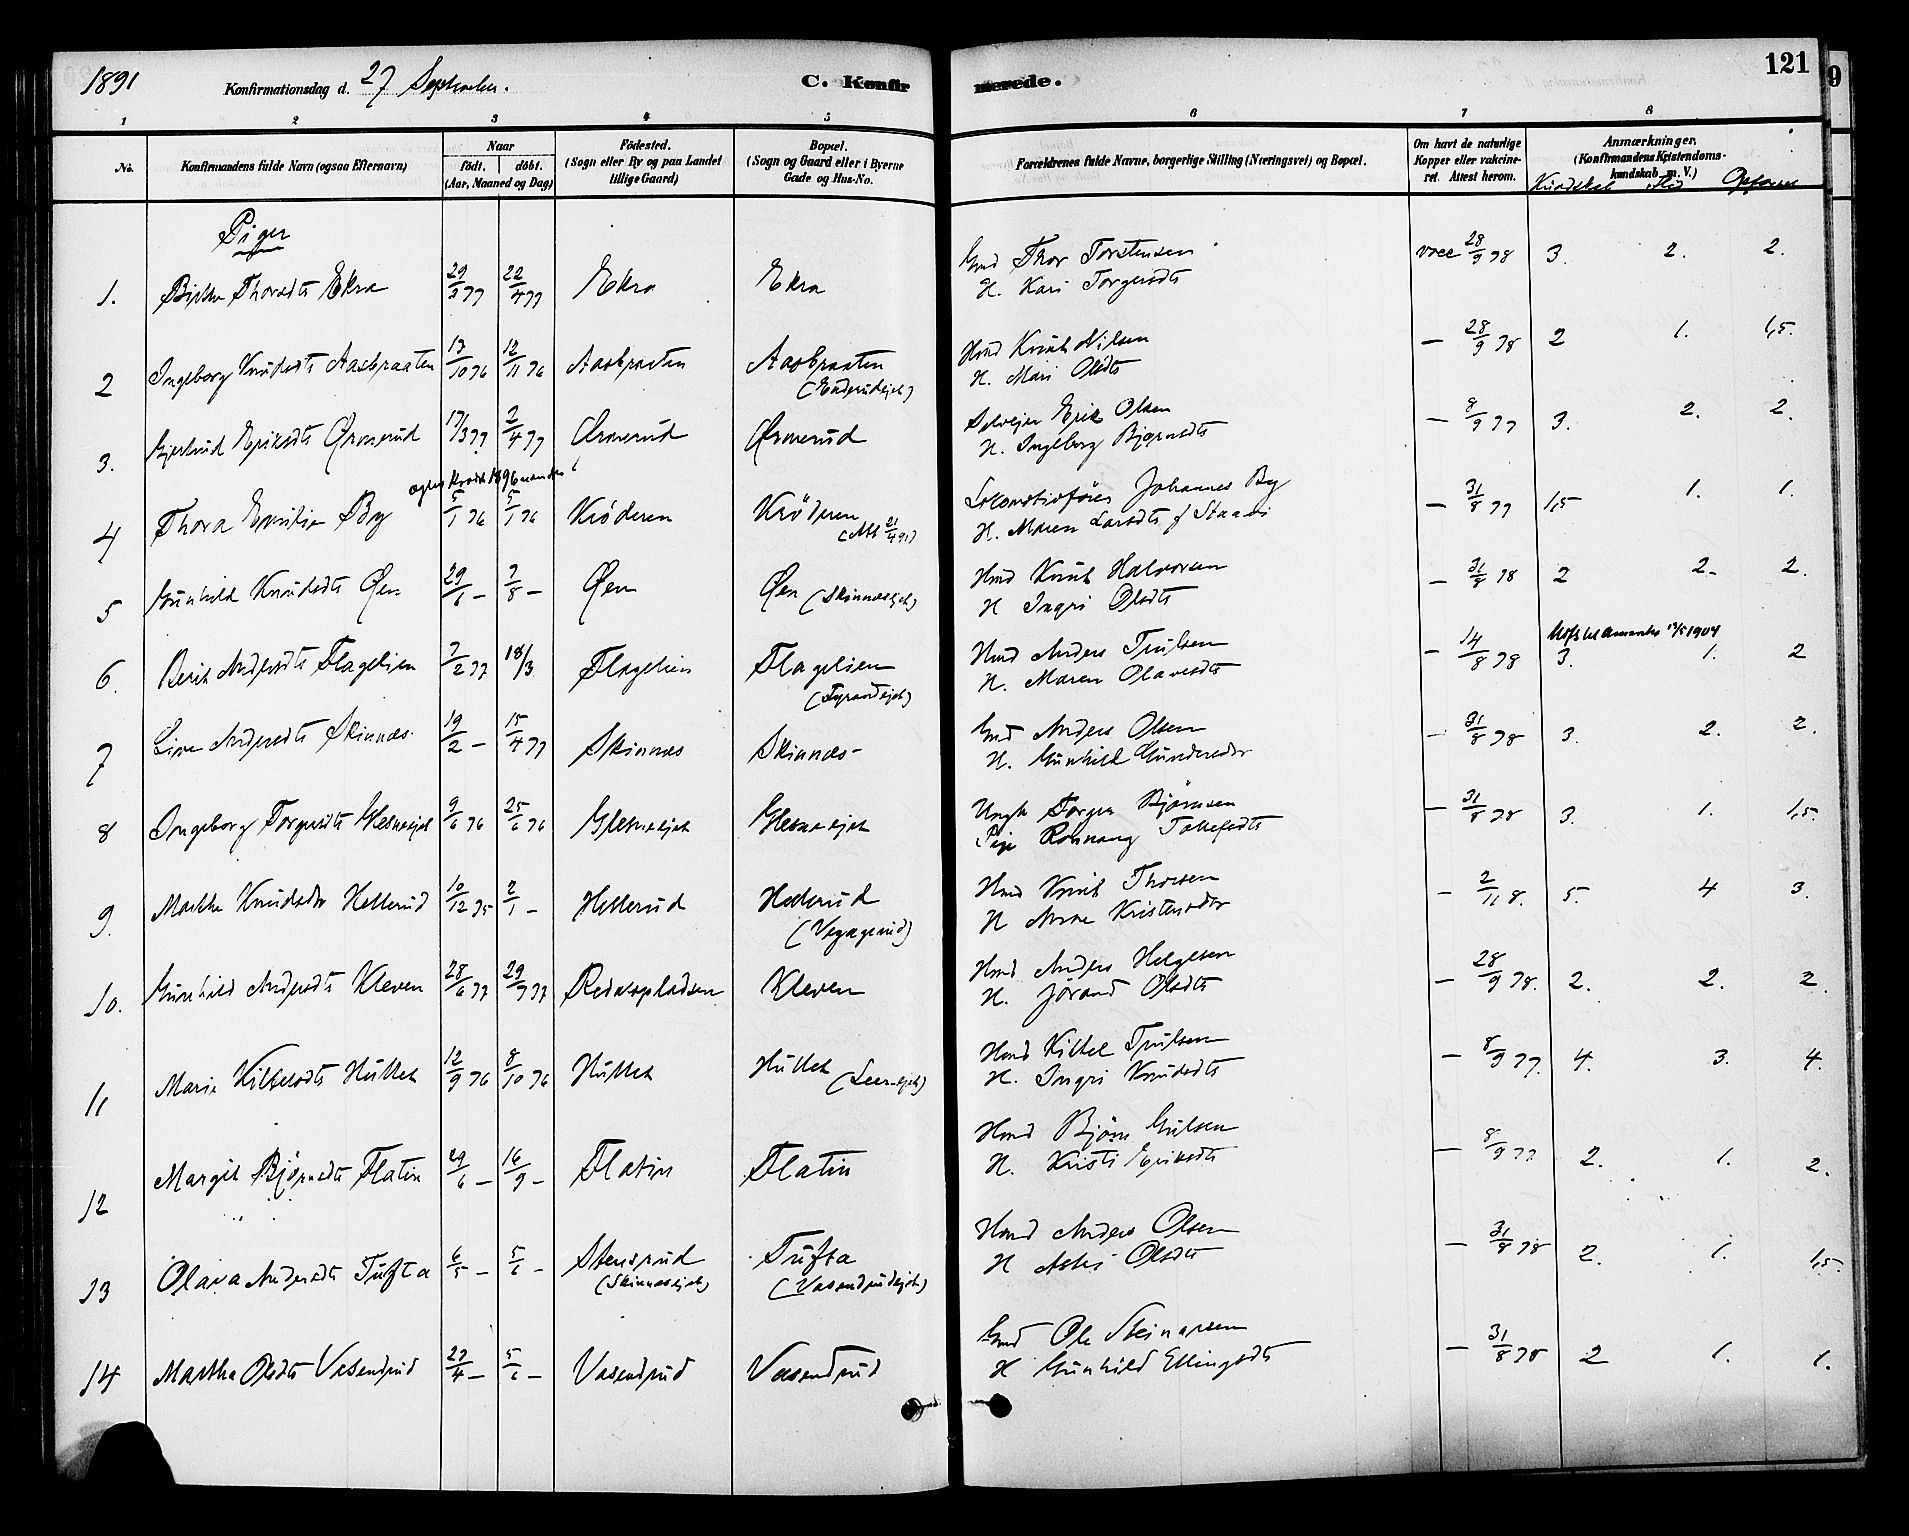 1891 Konfirmationsdag d. 27 September. C. Konfirmerede. 121
1 2 3 4 5 6 7 8
No. Konfirmandens fulde Navn (ogsaa Efternavn) Naar født. døbt. (Aar, Maaned og Dag) Födested. (Sogn eller By og paa Landet tillige Gaard) Bopæl. (Sogn og Gaard eller i Byerne Gade og Hus-No. Forældrenes fulde Navne, borgerlige Stilling (Næringsvei) og Bopæl. Om havt de naturlige Kopper eller vakcineret. Attest herom. Anmærkninger. (Konfirmandens Kristendomskundskab m. V.)
Kundskab Flid Opførsel
Piger
Gmd Thor Torstensen vacc 28/9 78 3. 2. 2.
1. Thorsdts Ekra 29/3 77 22/4 77 Ekra Ekra H. Kari Torgersdts
Hmd Knut Nilsen — 28/9 78 2 1. 1,5.
2 Ingeborg Knudsdts Aasbraaten 13/10 76 12/11 76 Aasbraaten Aasbraaten H. Mari Olsdts
Selvejer Erik Olsen — 8/9 77 3. 2. 2.
3. Gjertrud Eriksdts Ørmerud 17/3 77 2/4 77 Ørmerud Ørmerud H. Ingeborg Bjørnsdts
Lokomotivfører Johannes By — 31/8 77 1,5 1. 1.
4 Thora Emilie By 5/1 76 5/1 76 Krøderen Krøderen (Att 21/4 91) H. Maren Larsdts
Hmd Knut Halvorsen — 31/8 78 2 2- 2.
5 Gunhild Knudsdts Øen 29/6 — 7/8 — Øen Øen (Skinnesejet) H Ingri Olsdts
Hmd Anders Trulsen — 14/8 78 3. 1. 2
6. Berit Andersdts Flagelien 7/2 77 18/3 Flagelien Flagelien H. Maren Olavesdts
Gmd Anders Olsen — 31/8 78 3. 2. 2.
7 Live Andersdts Skinnes 19/2 — 15/4 77 Skinnes Skinnes- H. Gunhild Gundersdtr
Ungk Torger Bjørnsen — 31/8 78 3. 1. 1,5.
8 Ingeborg Torgersdts Glesneejet 9/6 76 25/6 76 Glesneejet Glesneejet Pige Rannaug Tollefsdts
Hmd Knut Thorsen — 2/11 8. 5. 4 3.
9. Marthe Knudsdtr Hellerud 10/12 75 2/1 — Hellerud Hellerud H Anne Kristensdtr
Hmd Anders Helgesen — 28/9 78. 2. 2. 2.
10. Gunhild Andersdts Kleven 28/6 77 29/7 77 Kleven H. Jørand Olsdts
Hmd Kittel Trulsen — 8/9 77. 4. 3. 4.
11 Marie Kittelsdts Hullet 12/9 76 8/10 76 Hullet Hullet H. Ingri Knudsdts
Hmd Bjørn Gulsen — 8/9 77 2. 1. 2.
12 Margit Bjørnsdts Flatin 29/6 — 16/9 — Flatin Flatin H. Kristi Eriksdts
Hmd Anders Olsen — 31/8 78 2. 1. 1,5.
13 Olava Andersdts Tufta 6/5 — 5/6 — Stensrud (Skinnesejet) Tufta (Vasendrudejet) H Olsdts
Gmd Ole Steinarsen — 31/8 78 2 1. 1.
14 Martha Olsdts Vasendrud 27/4 — 5/6 — Vasendrud Vasendrud H Gunhild Ellingsdts